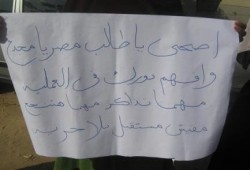 اصحى يا طالب مصر يا مجدع
وافهم دورك فى العمليه
مهما تذاكر مهما هتنجح
مفيش مستقبل بلا حريه